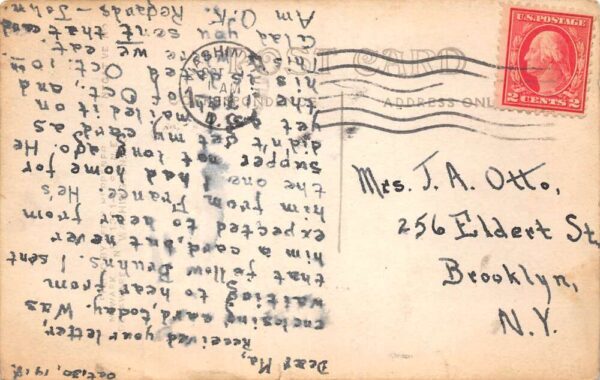 POST CARD
CORRESPONDENCE
ADDRESS ONLY
U.S. POSTAGE
2 CENTS 2
AM
Mrs. J. A. Otto,
256 Eldert St.,
Brooklyn,
N.Y.
Oct. 30, 1918.
Dear Ma,
Received your letter,
enclosing card today. Was
waiting to hear from
that fellow Bruhns. I sent
him a card, but never
expected to hear from
him from France. He's
the one I had home for
supper not long ago. He
didn't get my card as
yet I mailed it on
the of Oct. and
his is dated Oct. 10th.
This is where we eat.
Glad you sent that card
Am O.K. Regards - John